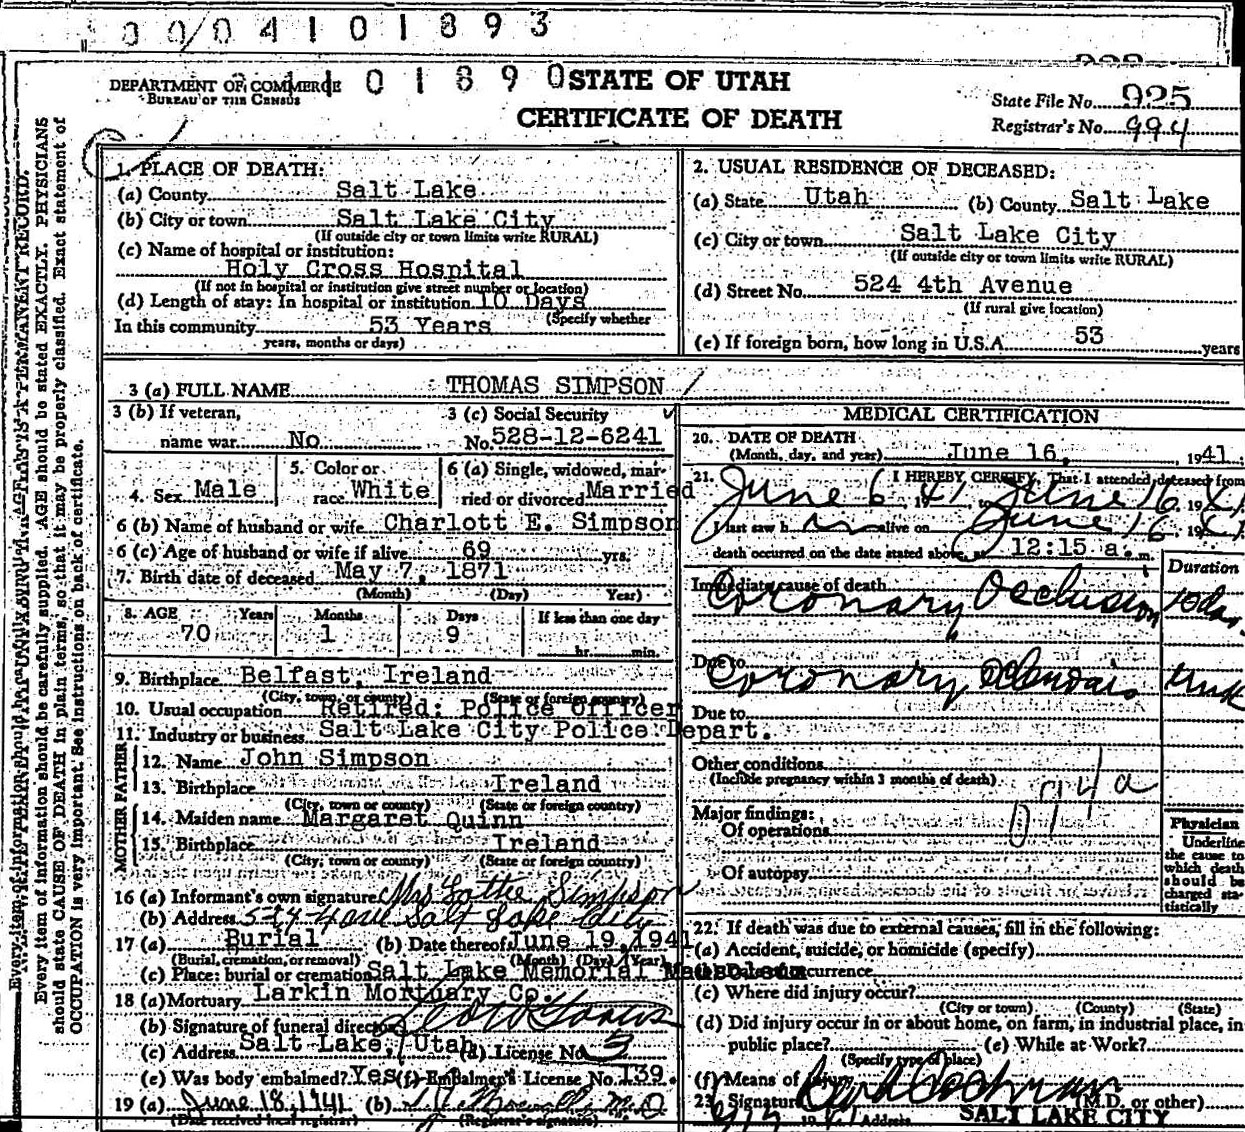 0 0/0 4 1 0 1 8 9 3
DEPARTMENT OF COMMERCE
BUREAU OF THE CENSUS
1 0 1 8 9 0
STATE OF UTAH
CERTIFICATE OF DEATH
State File No. 925
Registrar's No. 994
1. PLACE OF DEATH:
(a) County Salt Lake
(b) City or town Salt Lake City
(If outside city or town limits write RURAL)
(c) Name of hospital or institution:
Holy Cross Hospital
(If not in hospital or institution give street number or location)
(d) Length of stay: In hospital or institution 10 Days
(Specify whether
In this community 53 Years
years, months or days)
2. USUAL RESIDENCE OF DECEASED:
(a) State Utah (b) County Salt Lake
(c) City or town Salt Lake City
(If outside city or town limits write RURAL)
(d) Street No. 524 4th Avenue
(If rural give location)
(e) If foreign born, how long in U.S.A. 53 years
3 (a) FULL NAME THOMAS SIMPSON
3 (b) If veteran, name war No
3 (c) Social Security No. 528-12-6241
4. Sex Male
5. Color or race White
6 (a) Single, widowed, married or divorced Married
6 (b) Name of husband or wife Charlott E. Simpson
6 (c) Age of husband or wife if alive 69 yrs.
7. Birth date of deceased May 7, 1871
(Month) (Day) Year)
8. AGE Years Months Days If less than one day
70 1 9 hr. min.
9. Birthplace Belfast, Ireland
(City, town, or county) (State or foreign country)
10. Usual occupation Retired: Police Officer
11. Industry or business Salt Lake City Police Depart.
FATHER
12. Name John Simpson
13. Birthplace Ireland
(City, town or county) (State or foreign country)
MOTHER
14. Maiden name Margaret Quinn
15. Birthplace Ireland
(City, town or county) (State or foreign country)
16 (a) Informant's own signature Mrs Lottie Simpson
(b) Address 524 4 ave Salt Lake City
17 (a) Burial (b) Date thereof June 19, 1941
(Burial, cremation, or removal) (Month) (Day) (Year)
(c) Place: burial or cremation Salt Lake Memorial Mausoleum
18 (a) Mortuary Larkin Mortuary Co.
(b) Signature of funeral director
(c) Address Salt Lake, Utah (d) License No. 3
(e) Was body embalmed? Yes (f) Embalmer's License No. 139.
19 (a) June 18, 1941 (b) M.D
(Date received local registrar) (Registrar's signature)
MEDICAL CERTIFICATION
20. DATE OF DEATH
(Month, day, and year) June 16, 1941
21. I HEREBY CERTIFY, That I attended deceased from
June 6 1941, June 16 1941
I last saw h im alive on June 16 1941
death occurred on the date stated above, at 12:15 a. m.
Duration
Immediate cause of death Coronary Occlusion 10 da.
Due to Coronary
Due to
Other conditions
(Include pregnancy within 3 months of death)
94a
Major findings:
Of operations
Of autopsy
Physician
Underline the cause to which death should be charged statistically
22. If death was due to external causes, fill in the following:
(a) Accident, suicide, or homicide (specify)
occurrence
(c) Where did injury occur?
(City or town) (County) (State)
(d) Did injury occur in or about home, on farm, in industrial place, in
public place? (e) While at Work?
(Specify type of place)
(f) Means of injury
23. Signature (M.D. or other)
Address SALT LAKE CITY
Every item of information should be carefully supplied. AGE should be stated EXACTLY. PHYSICIANS
should state CAUSE OF DEATH in plain terms, so that it may be properly classified. Exact statement of
OCCUPATION is very important. See instructions on back of certificate.